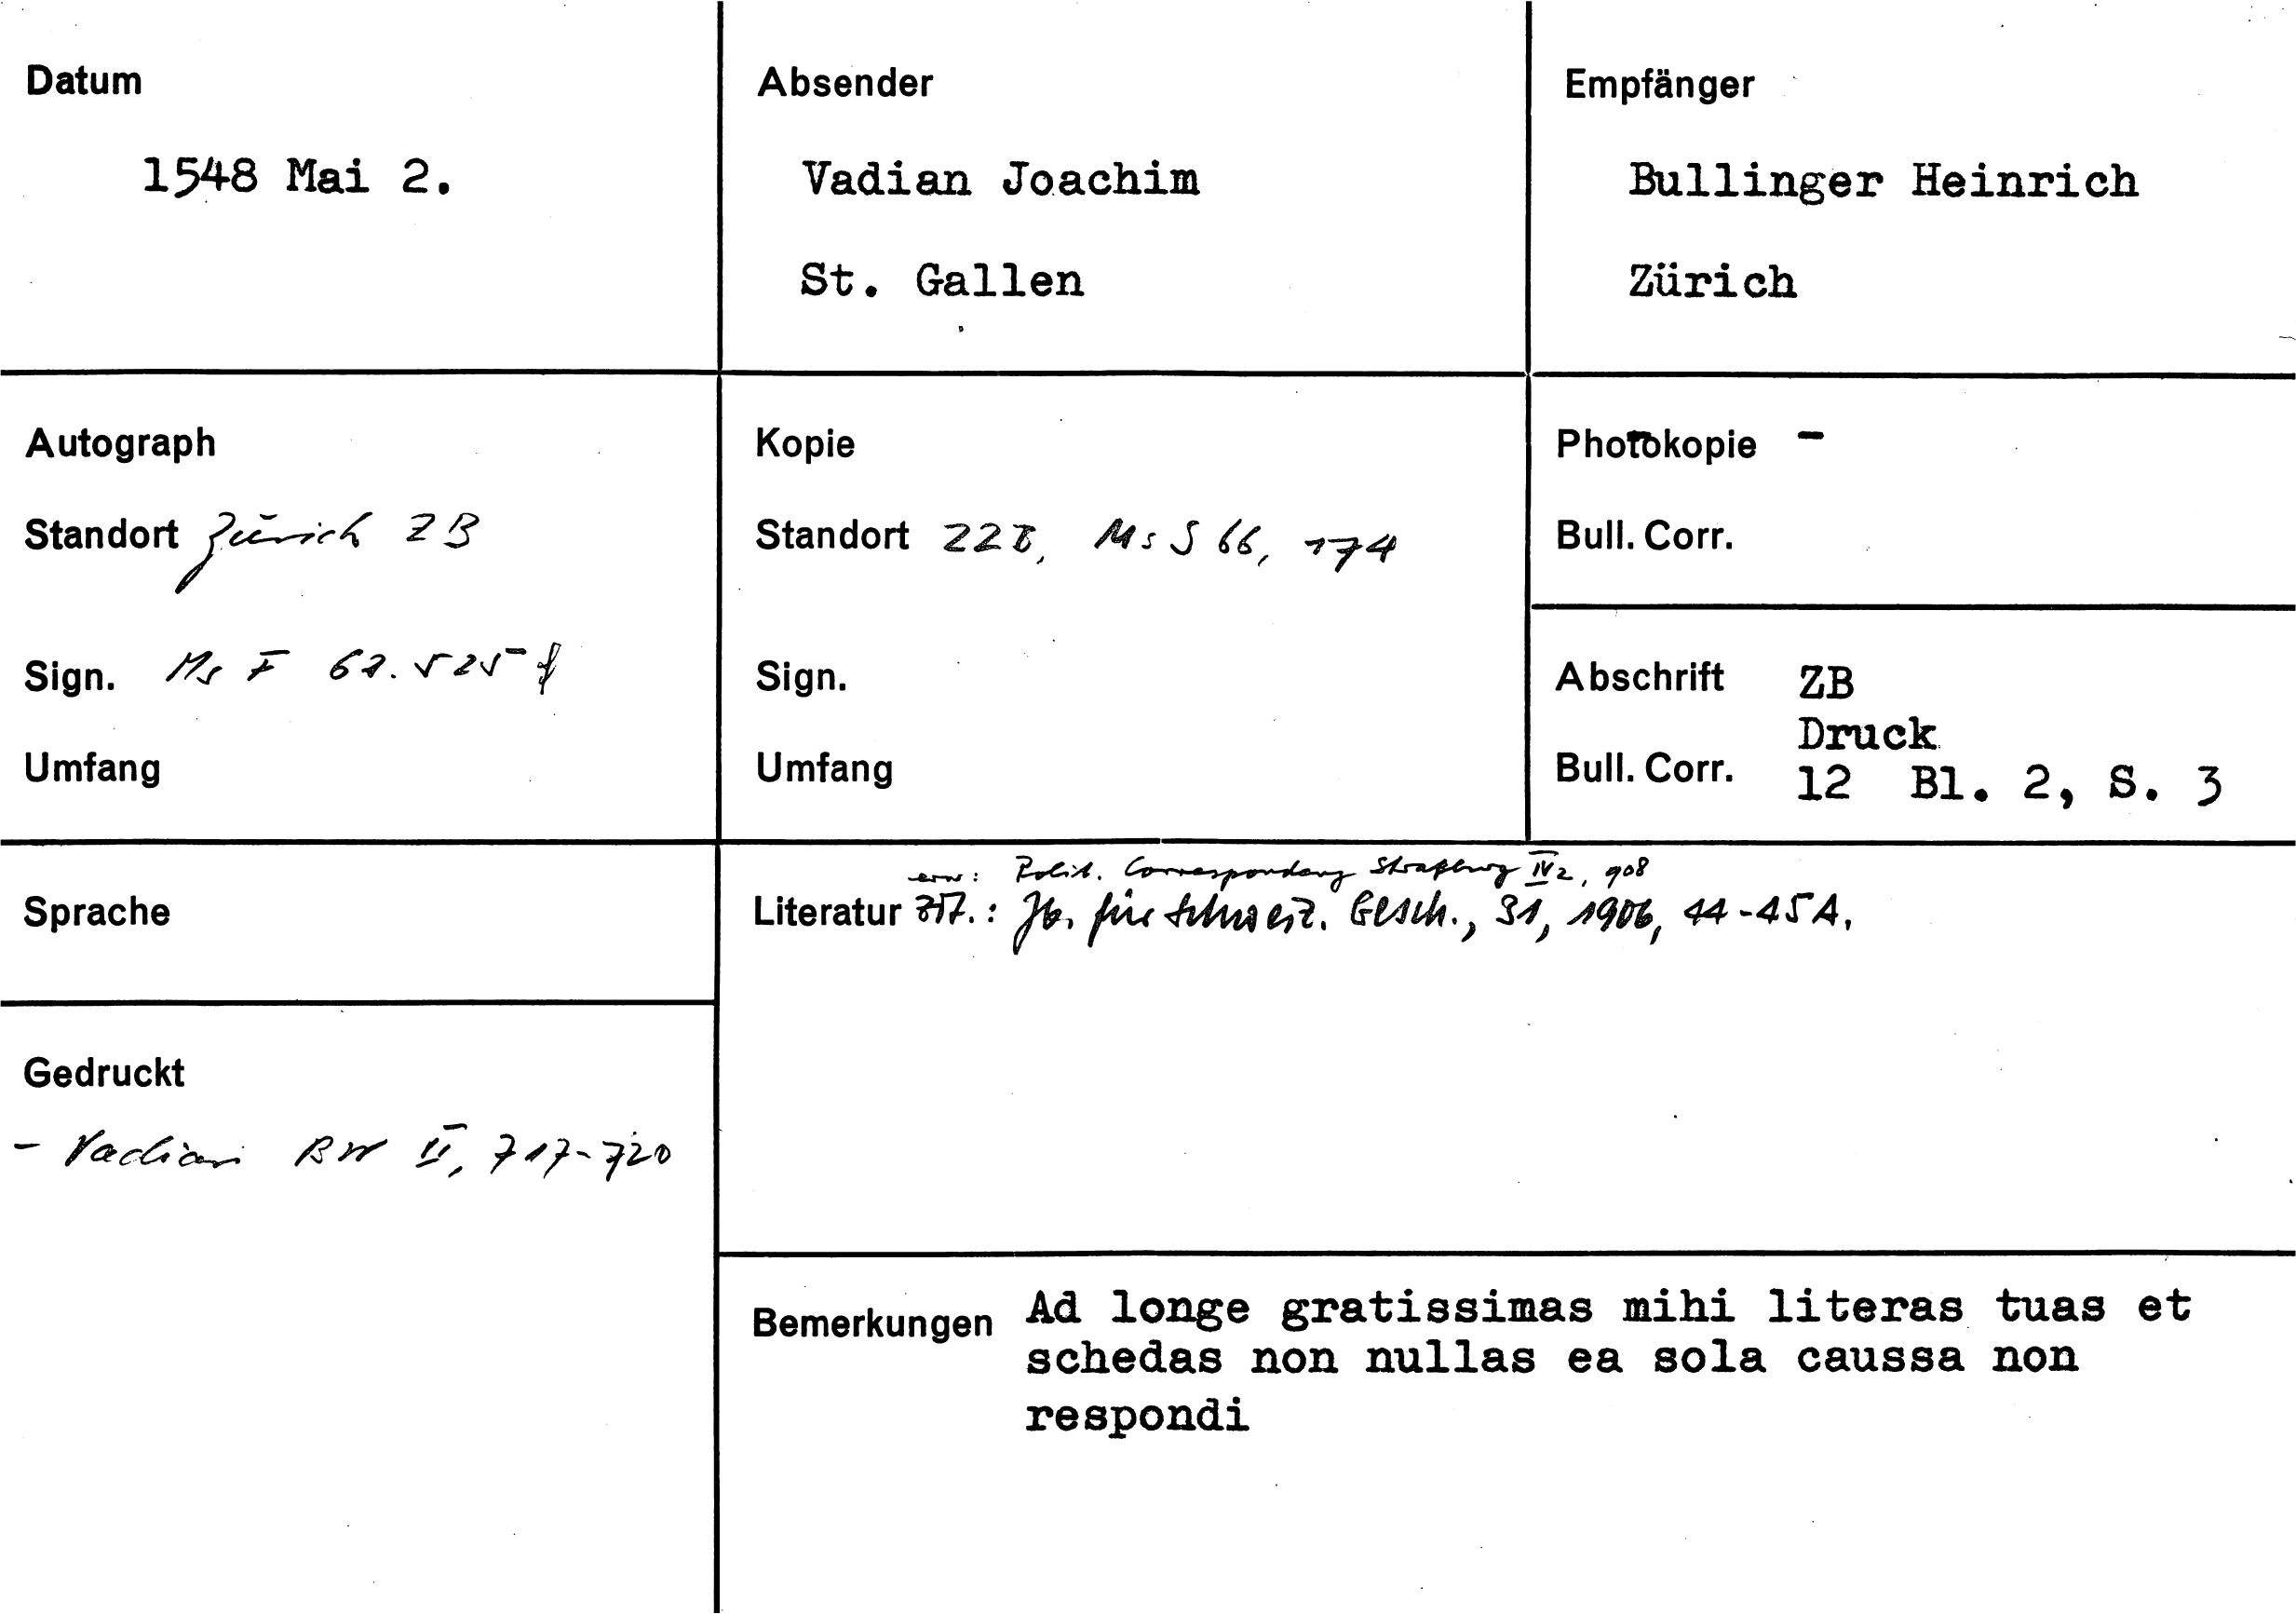 Datum
1548 Mai 2.
Absender
Vadian Joachim
St. Gallen
Empfänger
Bullinger Heinrich
Zürich
Autograph
Standort Zürich ZB
Sign. Ms F 62. 525 f
Umfang
Kopie
Standort ZZB, Ms S 66, 174
Sign.
Umfang
Photokopie -
Bull. Corr.
Abschrift ZB
Druck
Bull. Corr. 12 Bl. 2, S. 3
Sprache
erw: Polit. Correspondenz Straßburg IV2, 908
Literatur zit.: Jb. für Schweiz. Gesch., 31, 1906, 44-45 A.
Gedruckt
- Vadian BW II, 717-720
Bemerkungen Ad longe gratissimas mihi literas tuas et
schedas non nullas ea sola caussa non
respondi